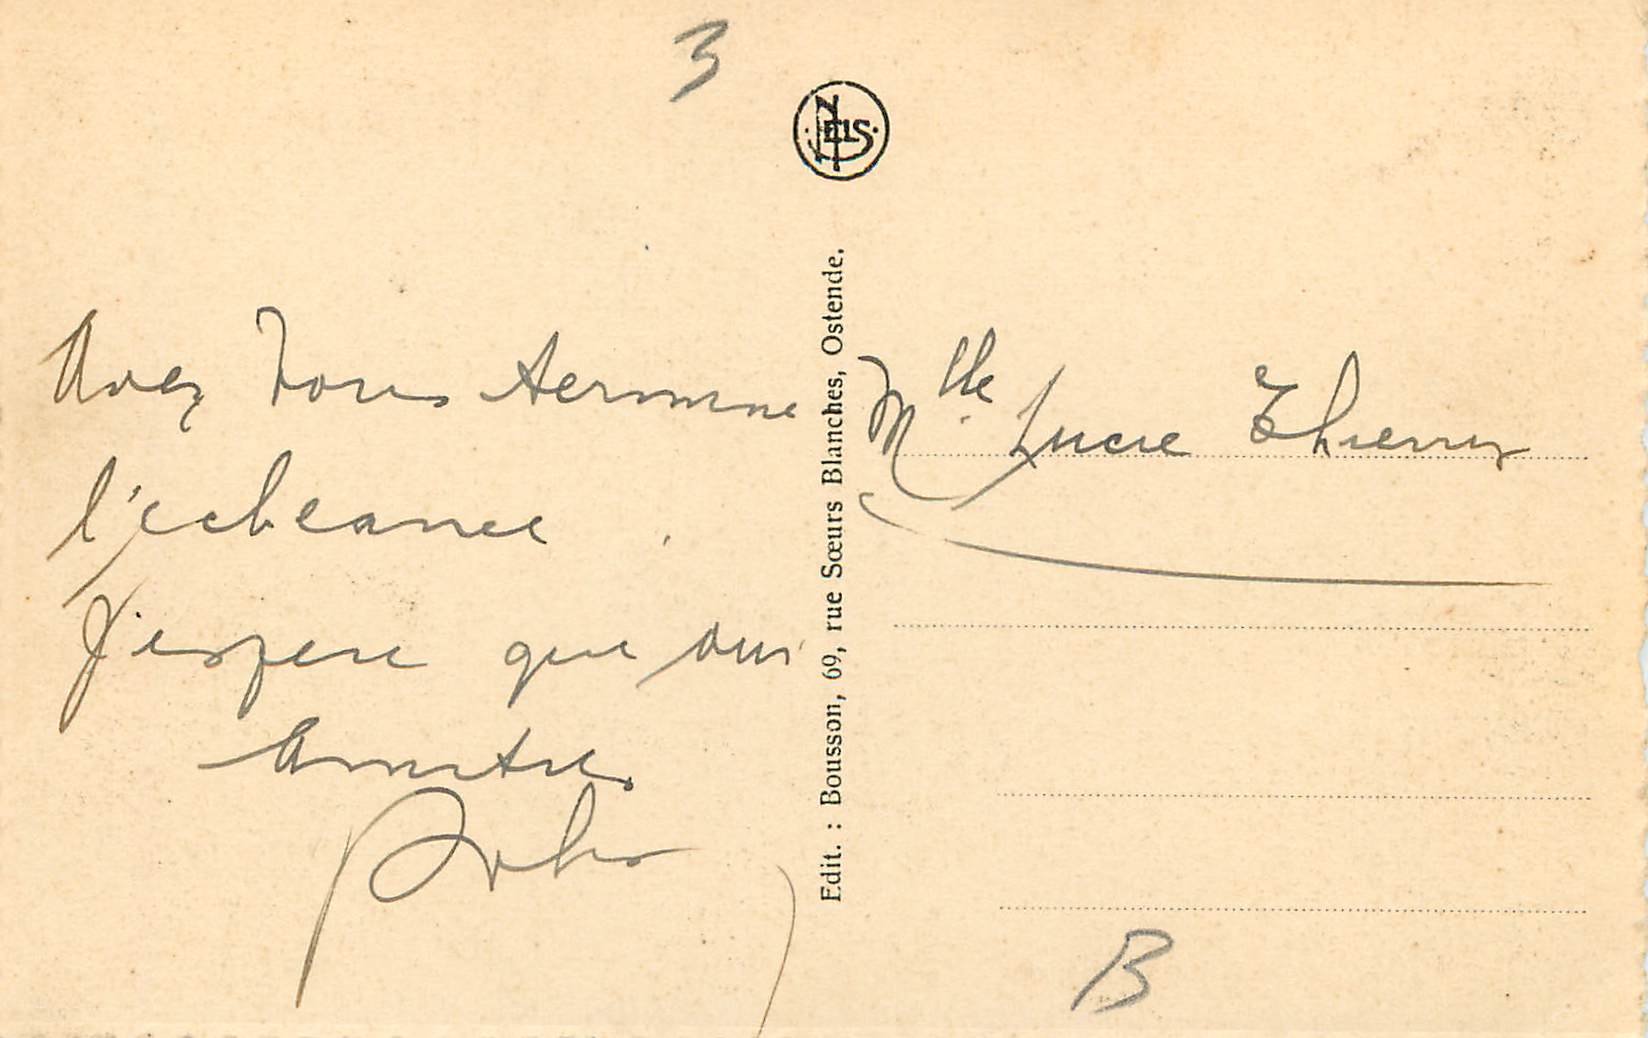 3
NELS
Avez vous terminé
l'echeance
J'espere que oui
Amities
Edit. : Bousson, 69, rue Sœurs Blanches, Ostende.
Mlle Lucie Thierry
B